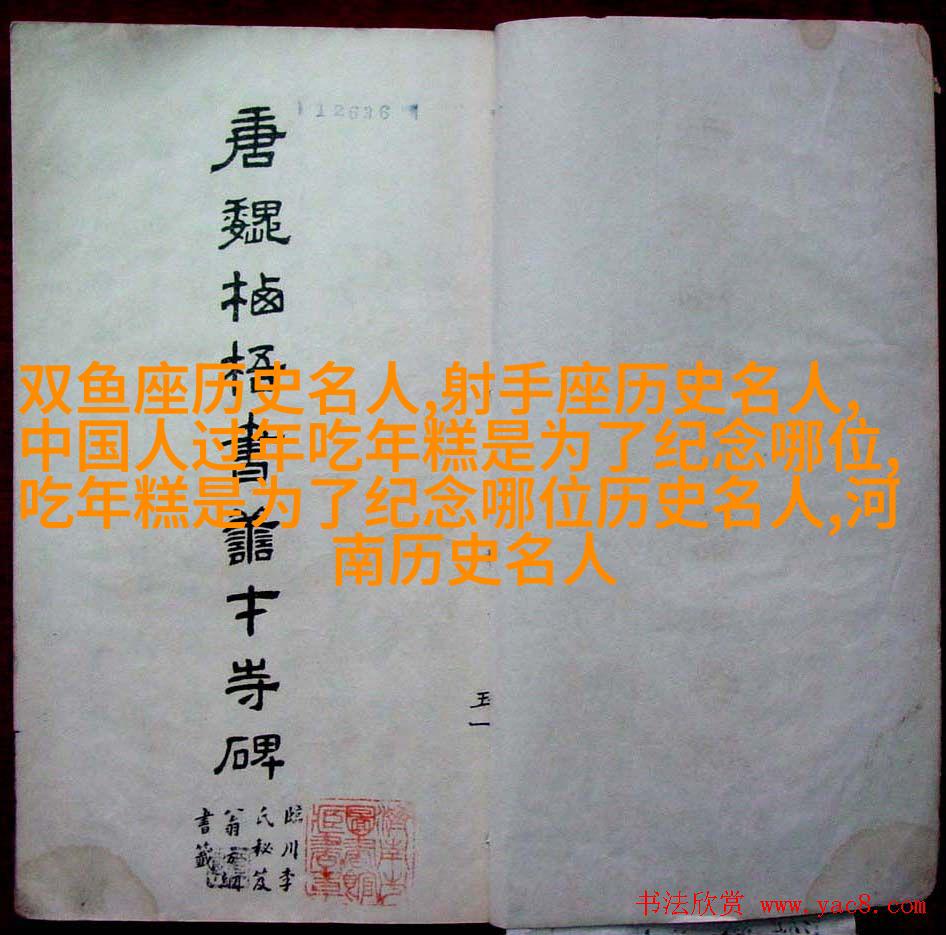 12636
唐魏栖梧書善才寺碑
臨川李
氏秘笈
翁方綱
書籤
濟南市
圖書館
藏書章
双鱼座历史名人,射手座历史名人,
中国人过年吃年糕是为了纪念哪位,
吃年糕是为了纪念哪位历史名人,河
南历史名人
书法欣赏 www.yac8.com